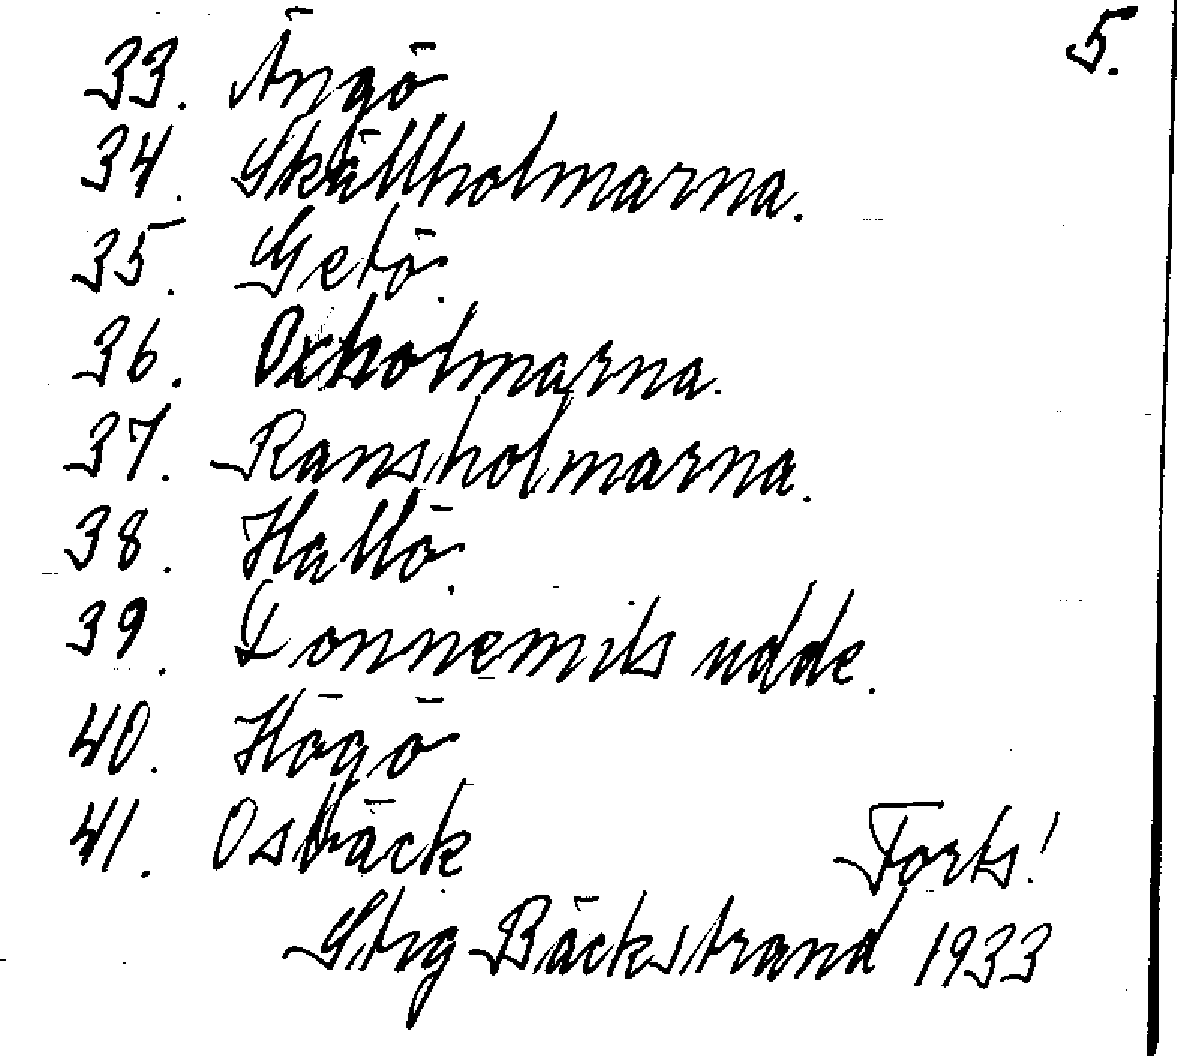 5.
33. Ängö
34. Skällholmarna.
35. Getö.
36. Oxholmarna.
37. Ransholmarna.
38. Hallö.
39. udde.
40. Högö
41. Osbäck Forts!
Stig Bäckstrand 1933